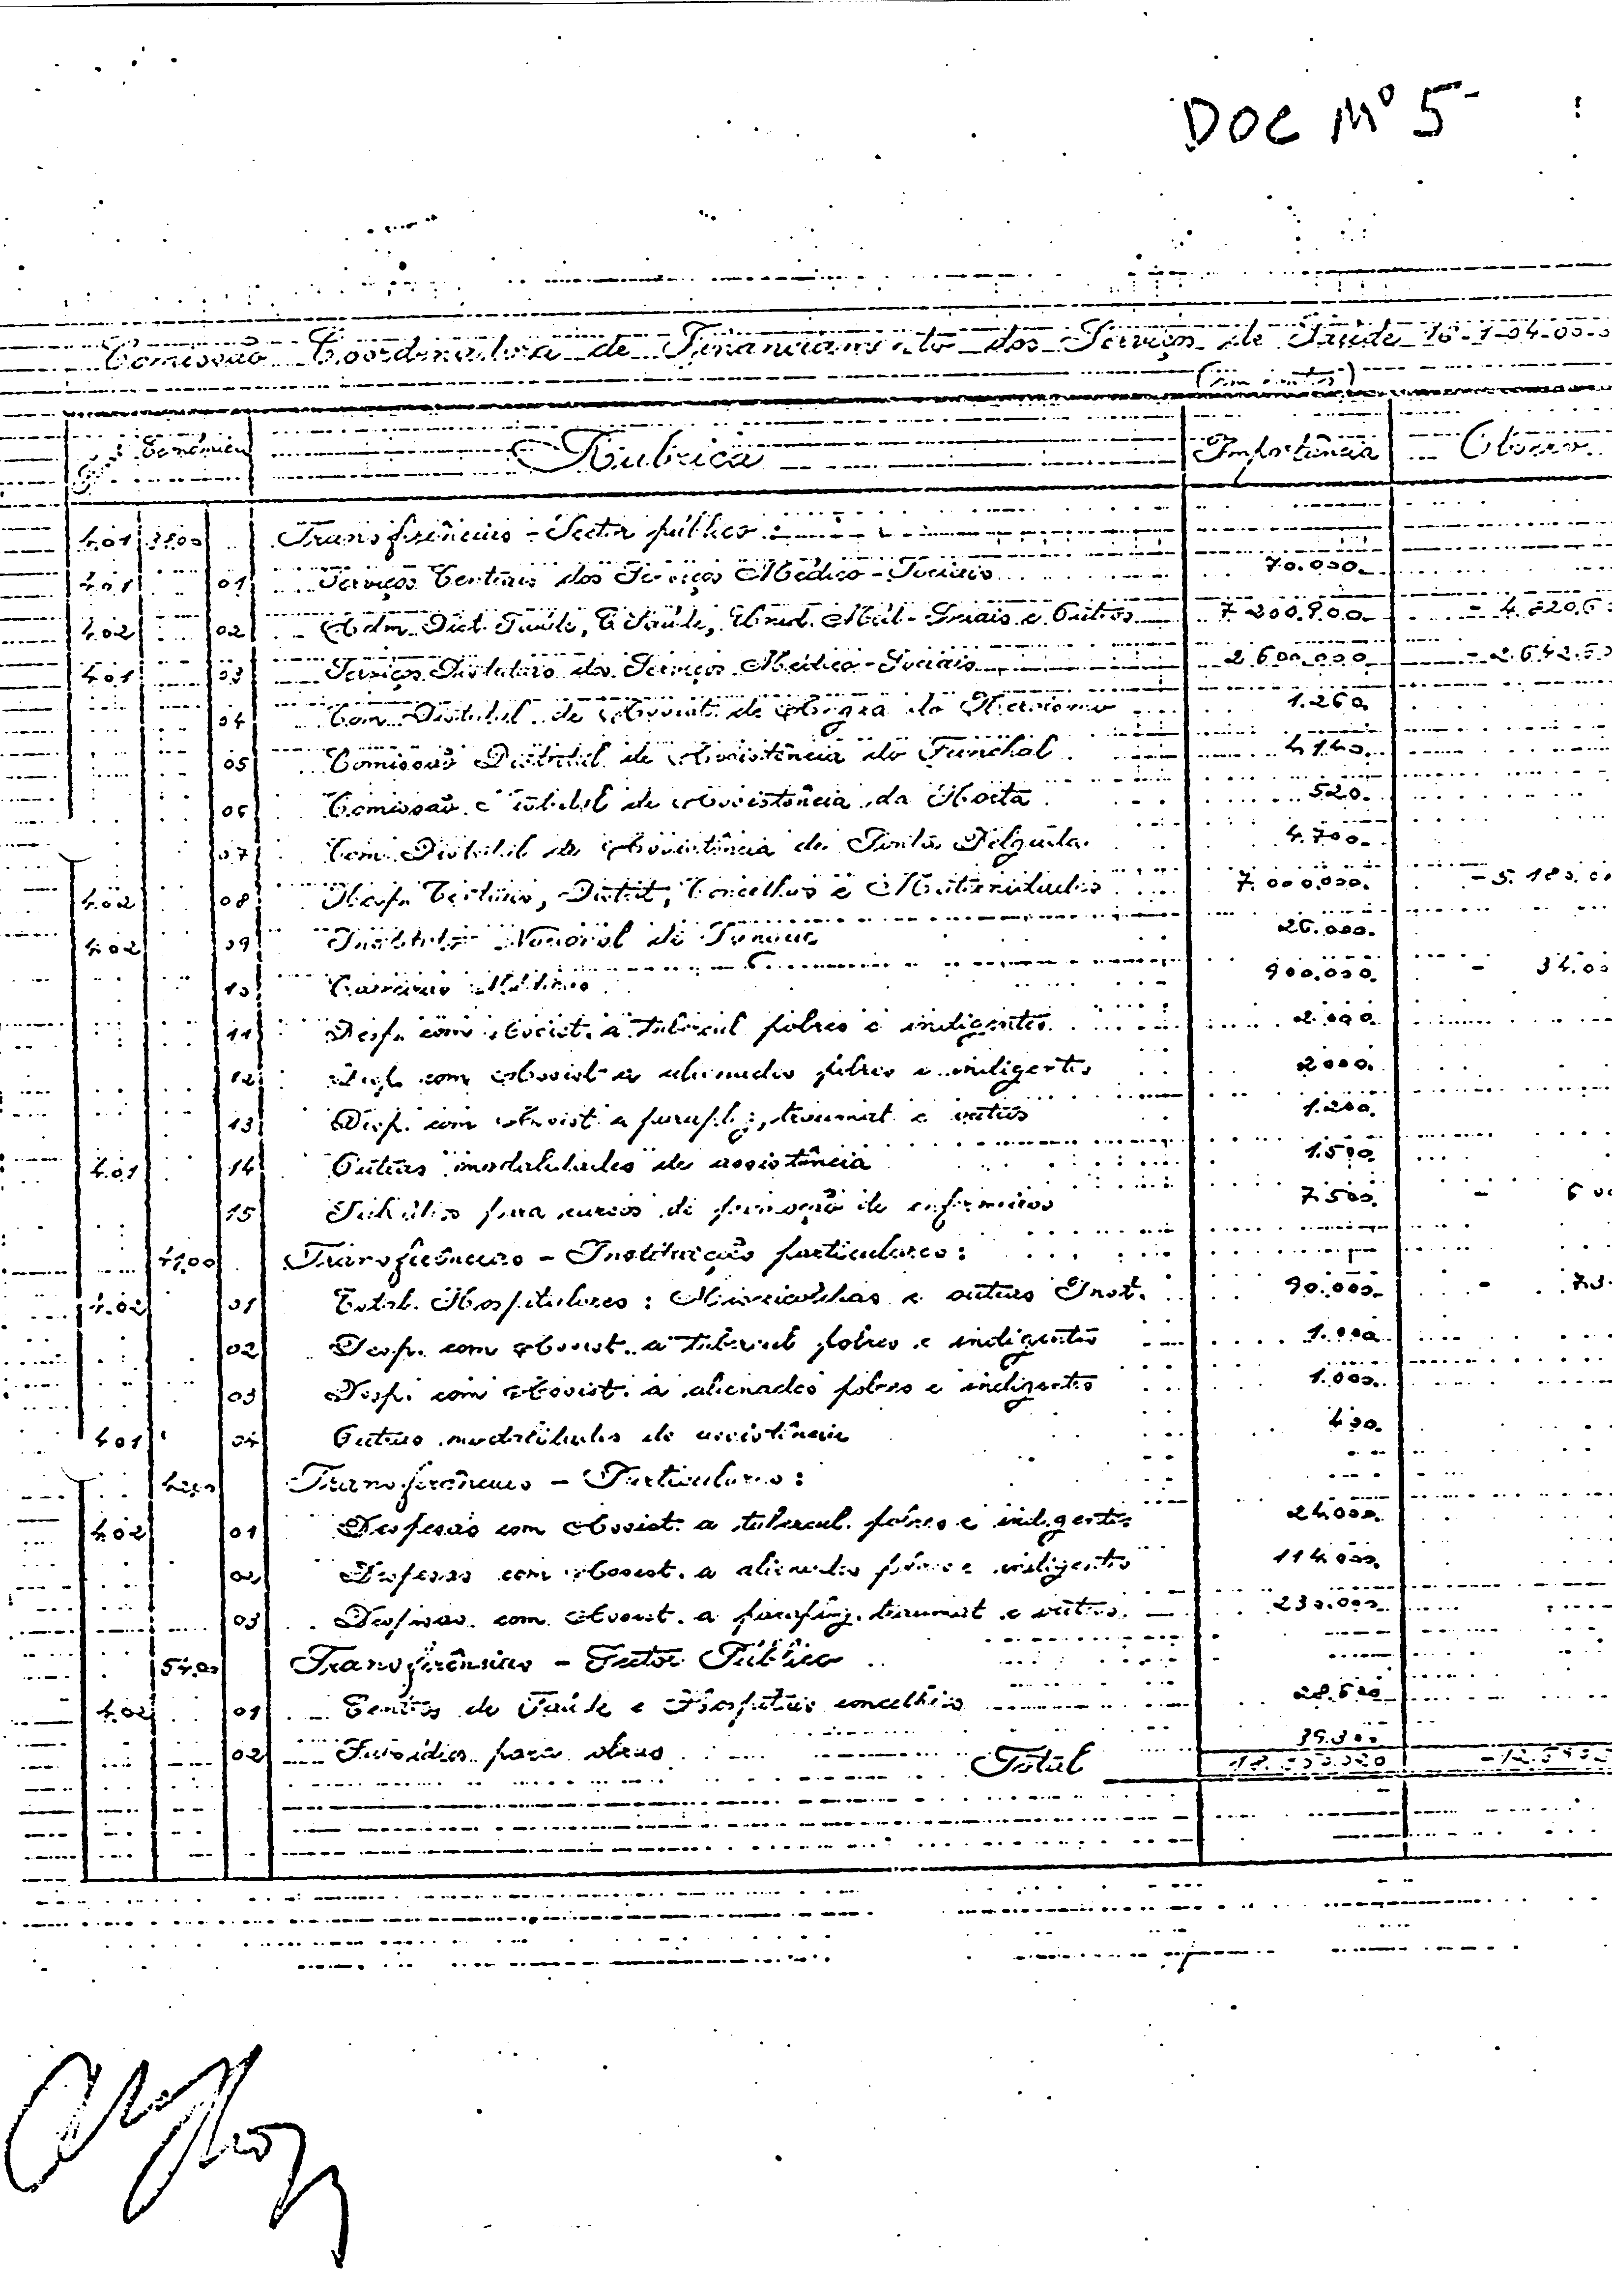 DOC Nº 5
Comissão Coordenadora de Financiamento dos Serviços de Saúde 16-1-04.00-0
(em contos)
Económica Rubrica Importância Observ.
4.01 38.00 Transferências - Sector público:
4.01 01 Serviços Centrais dos Serviços Médico-Sociais 70.000.
4.02 02 Adm. Dist. Saúde, C. Saúde, Unid. Méd-Sociais e Outros 7 200.900. - 4.820.6
4.01 03 Serviços Distritais dos Serviços Médico-Sociais 2.600.000 - 2.642.50
04 Com. Distrital de Assist. de Angra do Heroísmo 1.260.
05 Comissão Distrital de Assistência do Funchal 4.140.
06 Comissão Distrital de Assistência da Horta 520.
07 Com. Distrital de Assistência de Ponta Delgada 4.700.
4.02 08 Hosp. Centrais, Distrit, Concelhos e Maternidades 7.000.000. - 5.180.00
4.02 09 Instituto Nacional de Sangue 26.000.
10 Carreiras Médicas 900.000. - 34.00
11 Desp. com Assist. a tubercul pobres e indigentes 2.000.
12 Desp. com Assist a alienados pobres e indigentes 2000.
13 Desp. com Assist a paraplég, traumat e outros 1.200.
4.01 14 Outras modalidades de assistência 1.500
15 Subsídios para cursos de promoção de enfermeiros 7.500. - 6 00
41.00 Transferências - Instituições particulares:
4.02 01 Estab. Hospitalares: Misericórdias e outras Inst. 90.000. - 73.
02 Desp. com Assist. a tubercul pobres e indigentes 1.000
03 Desp. com Assist. a alienados pobres e indigentes 1.000.
4.01 04 Outras modalidades de assistência 400.
42.00 Transferências - Particulares:
4.02 01 Despesas com Assist. a tubercul. pobres e indigentes 24.000.
02 Despesas com Assist. a alienados pobres e indigentes 114.000.
03 Despesas com Assist. a paraplég. traumat e outros. 230.000
54.00 Transferências - Sector Público
4.02 01 Centros de Saúde e Hospitais concelhios 28.600
02 Subsídios para obras 39.300
Total